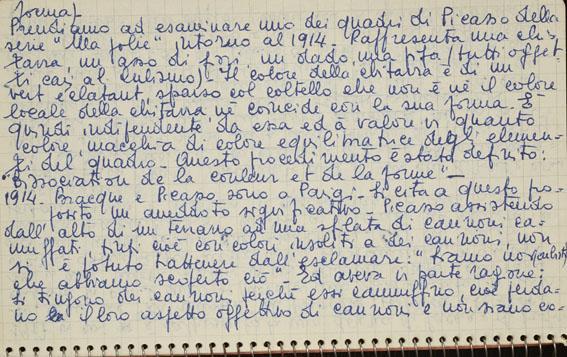 forma)
Prendiamo ad esaminare uno dei quadri di Picasso della
serie "Ma jolie" intorno al 1914. Raffresenta una chi-
tarra, un asso di fiori, un dado, una pipa (tutti ogget-
ti cari al cubismo). Il colore della chitarra è di un
vert éclatant, sparso col coltello che non è nè il colore
locale della chitarra, nè coincide con la sua forma. È
quindi indipendente da essa ed à valore in quanto
colore, macchia di colore equilibratrice degli elemen-
ti del quadro. Questo procedimento è stato definito:
"Dissociation de la couleur et de la forme" –
1914. Braque e Picasso sono a Parigi. Si cita a questo pro-
posito un aneddoto significativo. Picasso assistendo
dall'alto di un terrazzo ad una sfilata di cannoni ca-
muffati, tinti cioè con colori insoliti a dei cannoni, non
si è potuto trattenere dall'esclamare: "Siamo noi
che abbiamo scoperto ciò". Ed aveva in parte ragione:
si tingono dei cannoni perchè essi camuffino, cioè perda-
no il loro aspetto oggettivo di cannoni e non siano co-